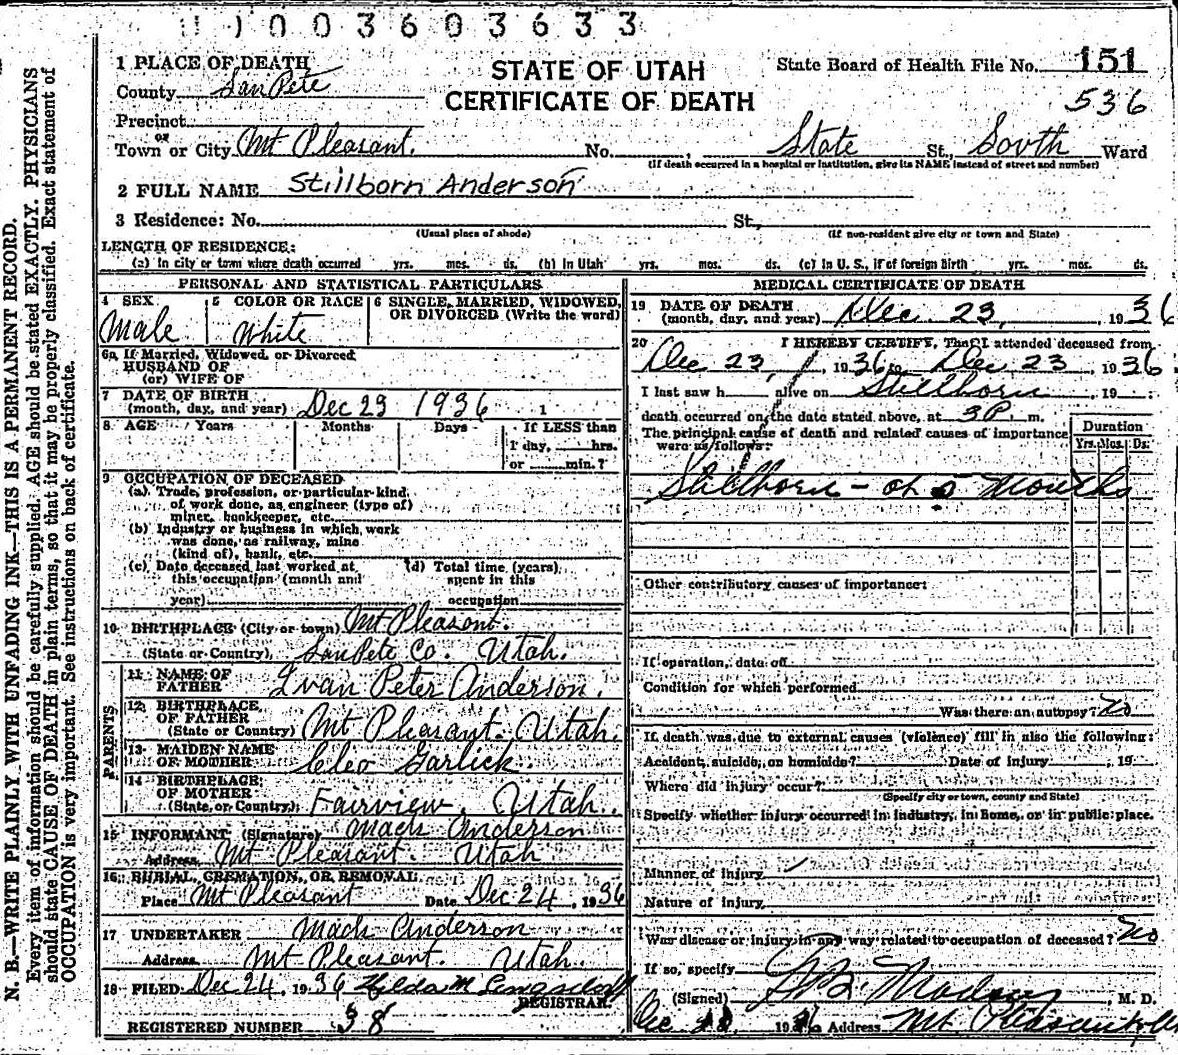 1003603633
1 PLACE OF DEATH
STATE OF UTAH
State Board of Health File No. 151
County SanPete
CERTIFICATE OF DEATH
536
Precinct
or
Town or City Mt Pleasant. No. , State St., South Ward
(If death occurred in a hospital or institution, give its NAME instead of street and number)
2 FULL NAME Stillborn Anderson
3 Residence: No. St.,
(Usual place of abode) (If non-resident give city or town and State)
LENGTH OF RESIDENCE:
(a) In city or town where death occurred yrs. mos. ds. (b) In Utah yrs. mos. ds. (c) In U. S., if of foreign birth yrs. mos. ds.
PERSONAL AND STATISTICAL PARTICULARS
4 SEX 5 COLOR OR RACE 6 SINGLE, MARRIED, WIDOWED,
OR DIVORCED (Write the word)
Male White
6a If Married, Widowed, or Divorced
HUSBAND OF
(or) WIFE OF
7 DATE OF BIRTH
(month, day, and year) Dec 23 1936
8 AGE Years Months Days If LESS than
1 day, hrs.
or min.?
9 OCCUPATION OF DECEASED
(a) Trade, profession, or particular kind
of work done, as engineer (type of)
miner, bookkeeper, etc.
(b) Industry or business in which work
was done, as railway, mine
(kind of), bank, etc.
(c) Date deceased last worked at (d) Total time (years)
this occupation (month and spent in this
year) occupation
10 BIRTHPLACE (City or town) Mt Pleasant.
(State or Country) SanPete Co. Utah.
PARENTS
11 NAME OF
FATHER Ivan Peter Anderson.
12 BIRTHPLACE
OF FATHER
(State or Country) Mt Pleasant. Utah.
13 MAIDEN NAME
OF MOTHER Cleo Garlick.
14 BIRTHPLACE
OF MOTHER
(State or Country) Fairview, Utah.
15 INFORMANT (Signature) Mach Anderson
Address Mt Pleasant. Utah
16 BURIAL, CREMATION, OR REMOVAL
Place Mt Pleasant Date Dec 24, 1936
17 UNDERTAKER Mach Anderson
Address Mt Pleasant. Utah.
18 FILED Dec 24, 1936 Hilda M
REGISTRAR
REGISTERED NUMBER 38
MEDICAL CERTIFICATE OF DEATH
19 DATE OF DEATH
(month, day, and year) Dec. 23, 1936
20 I HEREBY CERTIFY, That I attended deceased from
Dec 23, 1936 to Dec 23, 1936
I last saw h alive on Stillborn, 19 ;
death occurred on the date stated above, at 3P. m.
The principal cause of death and related causes of importance
were as follows:
Duration
Yrs. Mos. Ds.
Stillborn - at 5 months
Other contributory causes of importance:
If operation, date of
Condition for which performed
Was there an autopsy? No
If death was due to external causes (violence) fill in also the following:
Accident, suicide, or homicide? Date of injury , 19
Where did injury occur?
(Specify city or town, county and State)
Specify whether injury occurred in industry, in home, or in public place.
Manner of injury
Nature of injury
Was disease or injury in any way related to occupation of deceased? No
If so, specify
(Signed) , M. D.
Dec 1936 Address Mt Pleasant
N. B.—WRITE PLAINLY WITH UNFADING INK—THIS IS A PERMANENT RECORD.
Every item of information should be carefully supplied. AGE should be stated EXACTLY. PHYSICIANS
should state CAUSE OF DEATH in plain terms, so that it may be properly classified. Exact statement of
OCCUPATION is very important. See instructions on back of certificate.